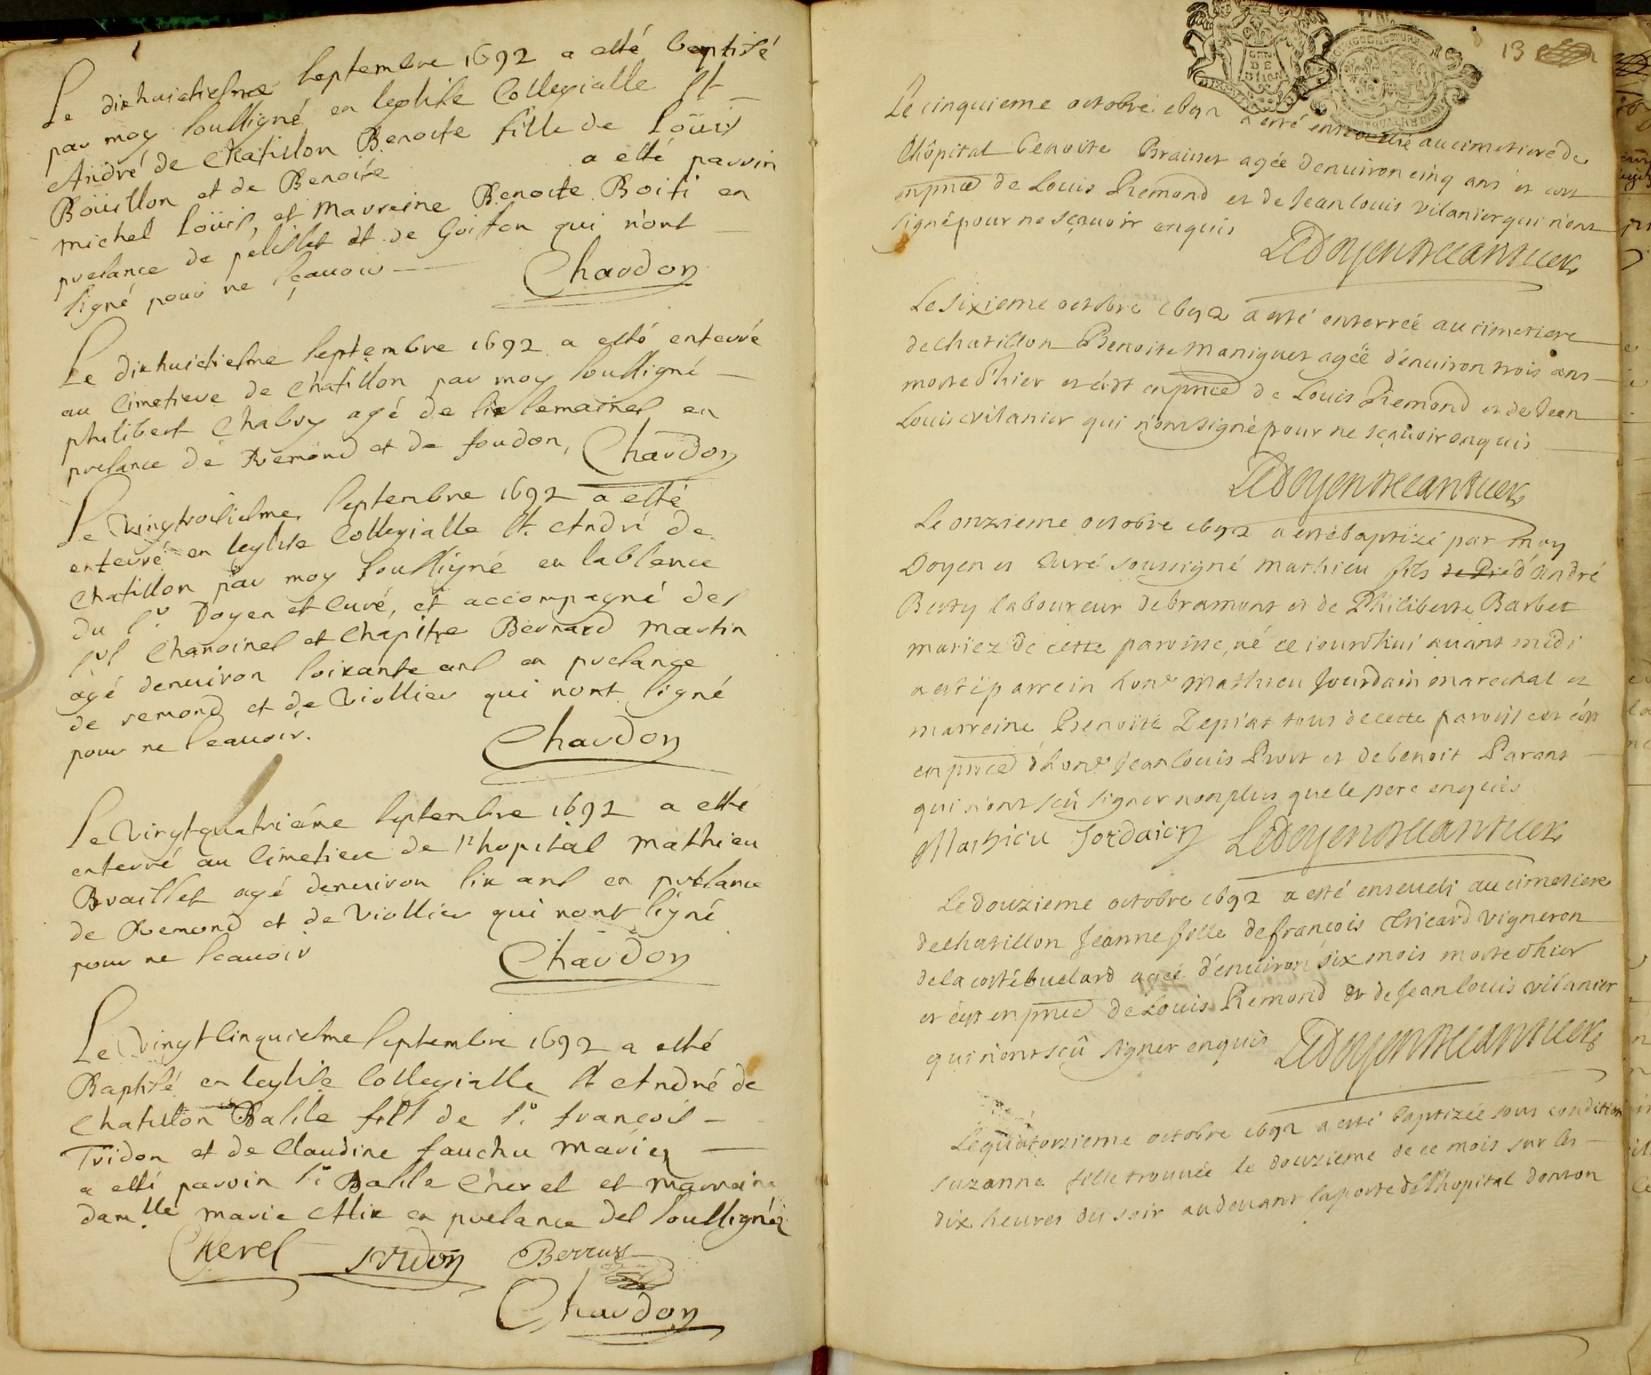 Le dixhuictiesme septembre 1692 a esté baptisé
par moy soussigné en leglise Collegialle St
André de Chatillon Benoite fille de Loüis
Boüillon et de Benoite a esté parrin
michel Loüis, et Marraine Benoite Boiti en
presance de pelisset et de Goiffon qui n'ont
signé pour ne sçauoir
Chardon
Le dixhuictiesme septembre 1692 a esté enterré
au cimetiere de Chatillon par moy soussigné
philibert Chabry agé de six semaines en
presance de Remond et de foudon, Chardon
Le Vingtroisiesme septembre 1692 a esté
enterré en leglise Collegialle St. André de
Chatillon par moy soussigné en labsence
du sr Doyen et Curé, et accompagné des
srs Chanoines et Chapitre Bernard Martin
agé denuiron soixante ans en presance
de remond et de Viollier qui nont signé
pour ne scauoir.
Chardon
Le Vingtquatriéme septembre 1692 a esté
enterré au cimetiere de l'hopital Mathieu
Braillet agé denuiron six ans en presance
de Remond et de Viollier qui nont signé
pour ne scauoir
Chardon
Le Vingtcinquiesme septembre 1692 a esté
Baptisé en leglise Collegialle St André de
Chatillon Basile fils de sr. françois
Tridon et de Claudine fauchu mariez
a esté paroin sr Basile Cherel et marraine
damlle marie Alix en presance des soussignéz
Cherel Tridon Berrux
Chardon
13
Le cinquieme octobre 1692 a esté enterrée au cimetiere de
l'hôpital benoite Braisset agée denuiron cinq ans et c'est
en prnce de Louis Remond et de Jean louis vilanier qui n'ont
signé pour ne sçauoir enquis
Le Doyen
Le sixieme octobre 1692 a esté enterreé au cimetiere
de chatillon Benoite Maniguet agée d'enuiron trois ans
morte d'hier et c'est en prnce de Louis Remond et de Jean
Louis vilanier qui n'ont signé pour ne sçauoir enquis
Le Doyen
Le onzieme octobre 1692 a esté baptizé par moy
Doyen et Curé soussigné Mathieu fils d'andré
Berty laboureur de bramont et de Philiberte Barbet
mariez de cette paroisse, né ce iourd'hui auant midi
a esté parrein honr Mathieu Jourdain marechal et
marreine Benoite tous de cette paroisse et c'est
en prnce d'honr Jean louis Pvost et de benoit Parant
qui n'ont sçû signer non plus que le pere enquis
Mathieu Jordain Le Doyen
Le douzieme octobre 1692 a esté enseueli au cimetiere
de chatillon Jeanne fille de françois Ericard vigneron
de la costé buelard ageé d'enuiron six mois morte d'hier
et c'est en prnce de Louis Remond et de Jean louis vilanier
qui n'ont sçû signer enquis Le Doyen
Le quatorsieme octobre 1692 a esté baptizée sous condition
suzanne fille trouuée le douzieme de ce mois sur les
dix heures du soir au deuant la porte de l'hopital dont on